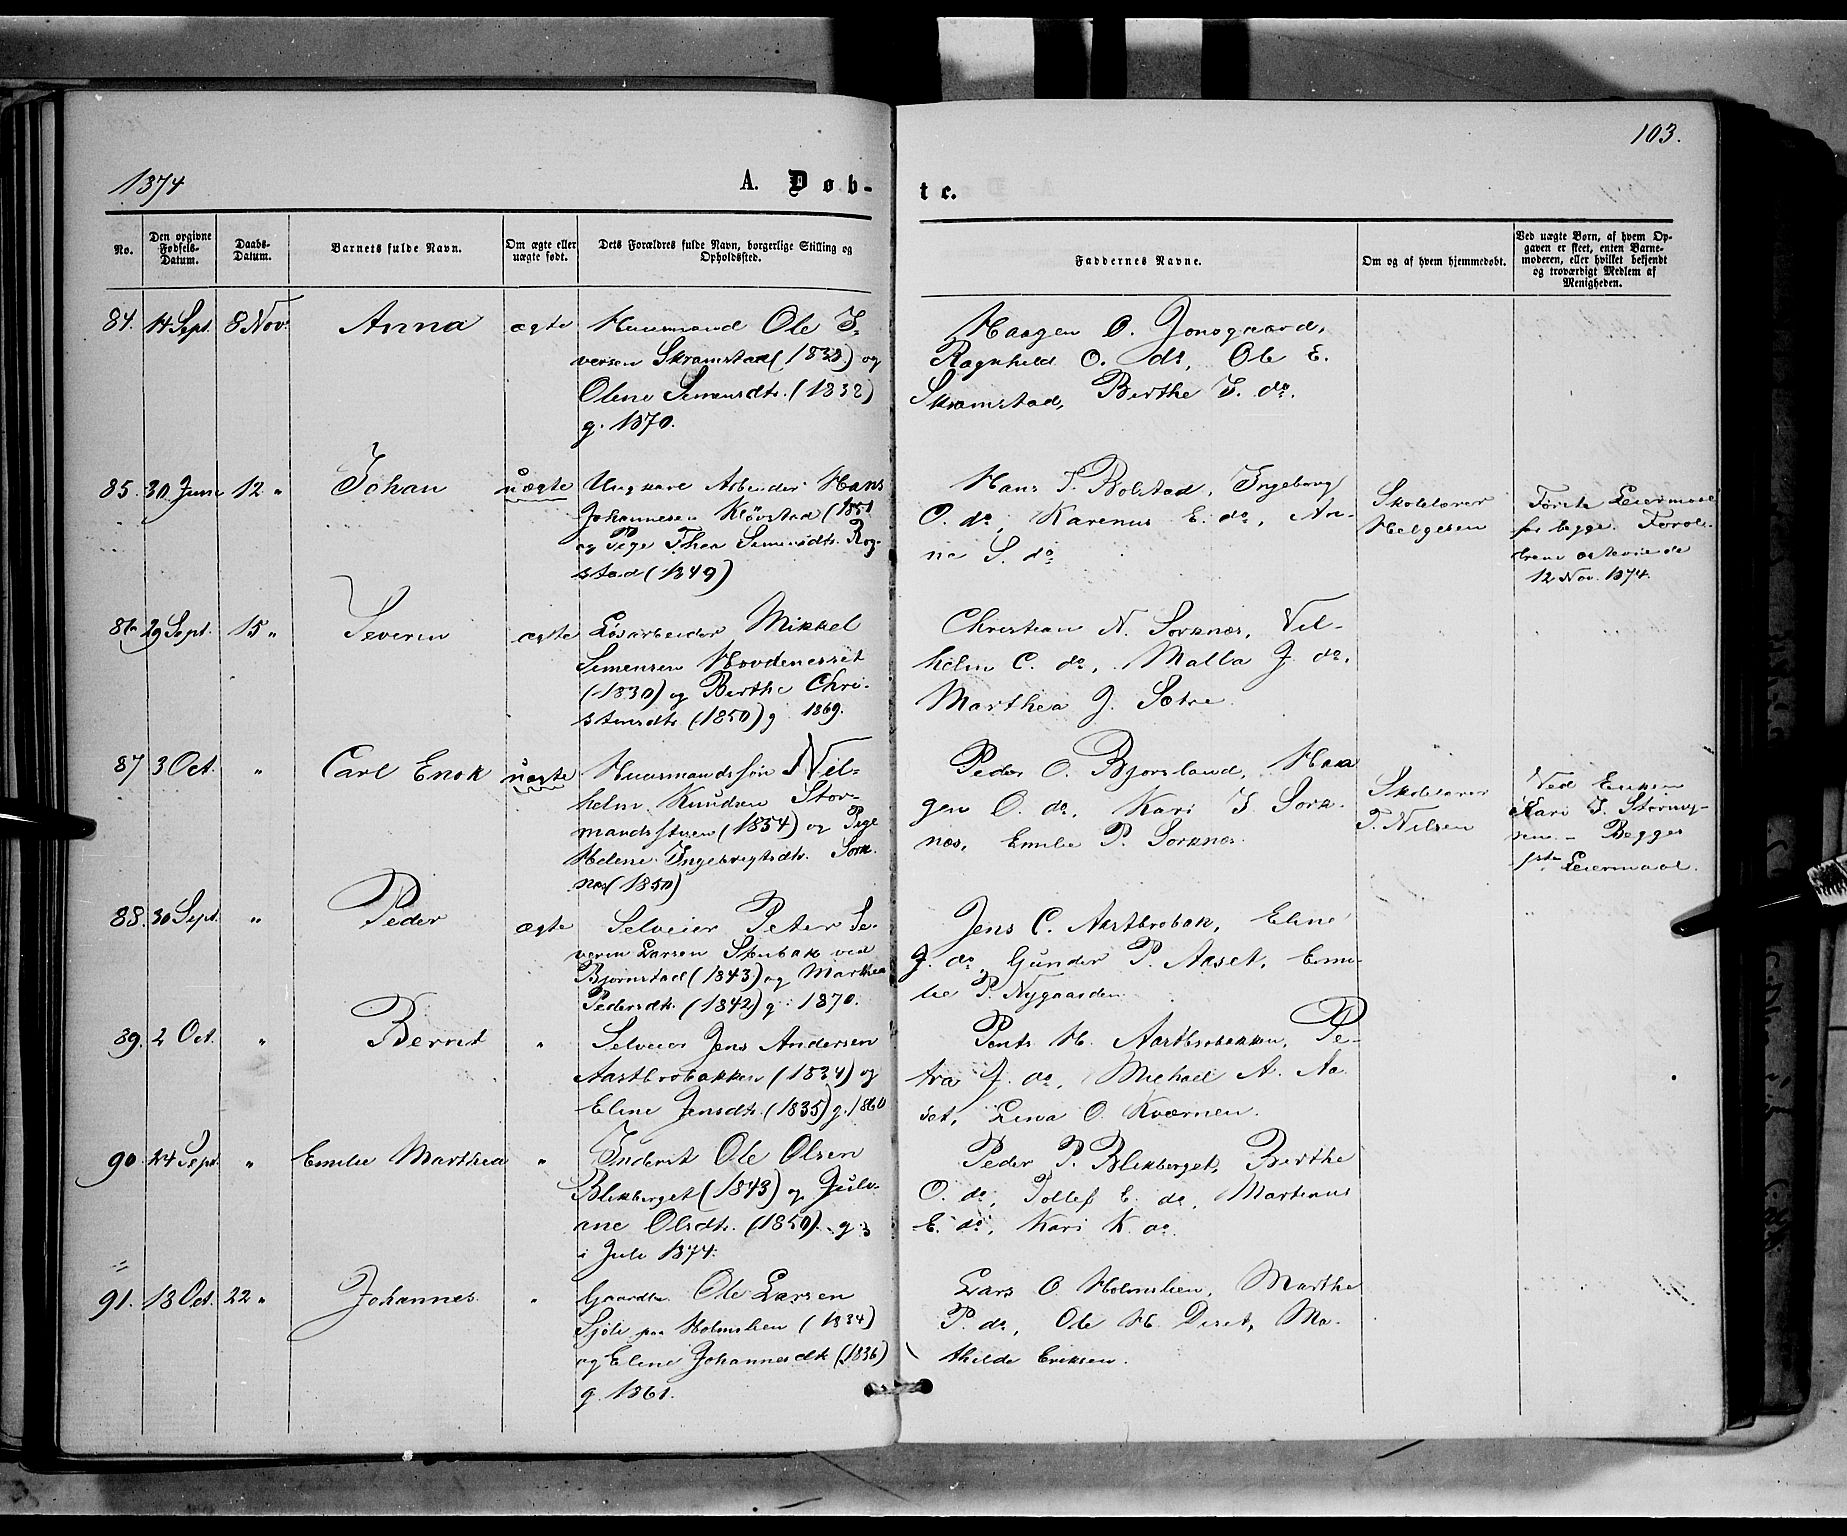 103.
1874
A. Døb-
te.
No.
Den opgivne Fødsels-Datum.
Daabs-Datum.
Barnets fulde Navn.
Om ægte eller uægte født.
Dets Forældres fulde Navn, borgerlige Stilling og Opholdssted.
Faddernes Navne.
Om og af hvem hjemmedøbt.
Ved uægte Børn, af hvem Opgaven er skeet, enten Barnemoderen, eller hvilket bekjendt og troværdigt Medlem af Menigheden.
84. 14 Sept. 8 Nov. Anna ægte
Huusmand Ole I-
versen Skramstad (1838) og
Olene Simensdtr. (1832)
g. 1870.
Haagen O. Jonsgaard,
Ragnhild O. do, Ole E.
Skramstad, Berthe I. do.
85. 30 Juni 12 " Johan uægte
Ungkarl Arbeider Hans
Johannesen Kløvstad (1851
og Pige Thea Simensdtr. Rog-
stad (1849)
Hans T. Bolstad, Ingeborg
O. do, Karenus E. do, An-
ne S. do
Skolelærer
Helgesen
Første Leiermaal
for begge.
12 Nov. 1874.
86 29 Sept. 15 " Severin ægte
Løsarbeider Mikkel
Simensen Hovdenesset
(1830) og Berthe Chri-
stensdtr. (1850) g. 1869.
Christian N. Sorknæs, Vil-
helm C. do, Malla J. do,
Marthea J. Sætre.
87 3 Oct. " Carl Enok uægte
Huusmandssøn Vil-
helm Knudsen Stor-
mandsstuen (1854) og Pige
Helene Ingebrigtsdtr. Sork-
næs (1850)
Peder O. Bjørsland, Haa
gen O. do, Kari I. Sork-
næs, Emilie P. Sorknæs.
Skolelærer
P. Nilsen
Ved Enken
Kari I.
Begges
1ste Leiermaal.
88. 30 Sept. " Peder ægte
Selveier Peter Se-
verin Larsen Stubak ved
Bjørnstad (1843) og Marthea
Pedersdtr. (1842) g. 1870.
Jens C. Aastbrobak, Eline
J. do, Gunder P. Aaset, Emi-
lie P. Nygaarden.
89. 2 Oct. " Bernt "
Selveier Jens Andersen
Aastbrobakken (1834) og
Eline Jensdtr. (1835) g. 1860
Bernt H. Aastbrobakken, Pe-
tra J. do, Michael A. Aa-
set, Lina O. Kværnen.
90. 24 Sept. " Emilie Marthea "
Inderst Ole Olsen
Blikberget (1843) og Julia-
ne Olsdtr. (1850). g.
i Juli 1874.
Peder P. Blikberget, Berthe
O. do, Tollef E. do, Martinus
E. do, Kari K. do.
91. 18 Oct. 22 " Johannes "
Gaardbr. Ole Larsen
Sjøli paa Holmslien (1834)
og Eline Johannesdtr. (1836)
g. 1861.
Lars O. Holmslien, Marthe
P. do, Ole H. Diset, Ma-
thilde Eriksen.